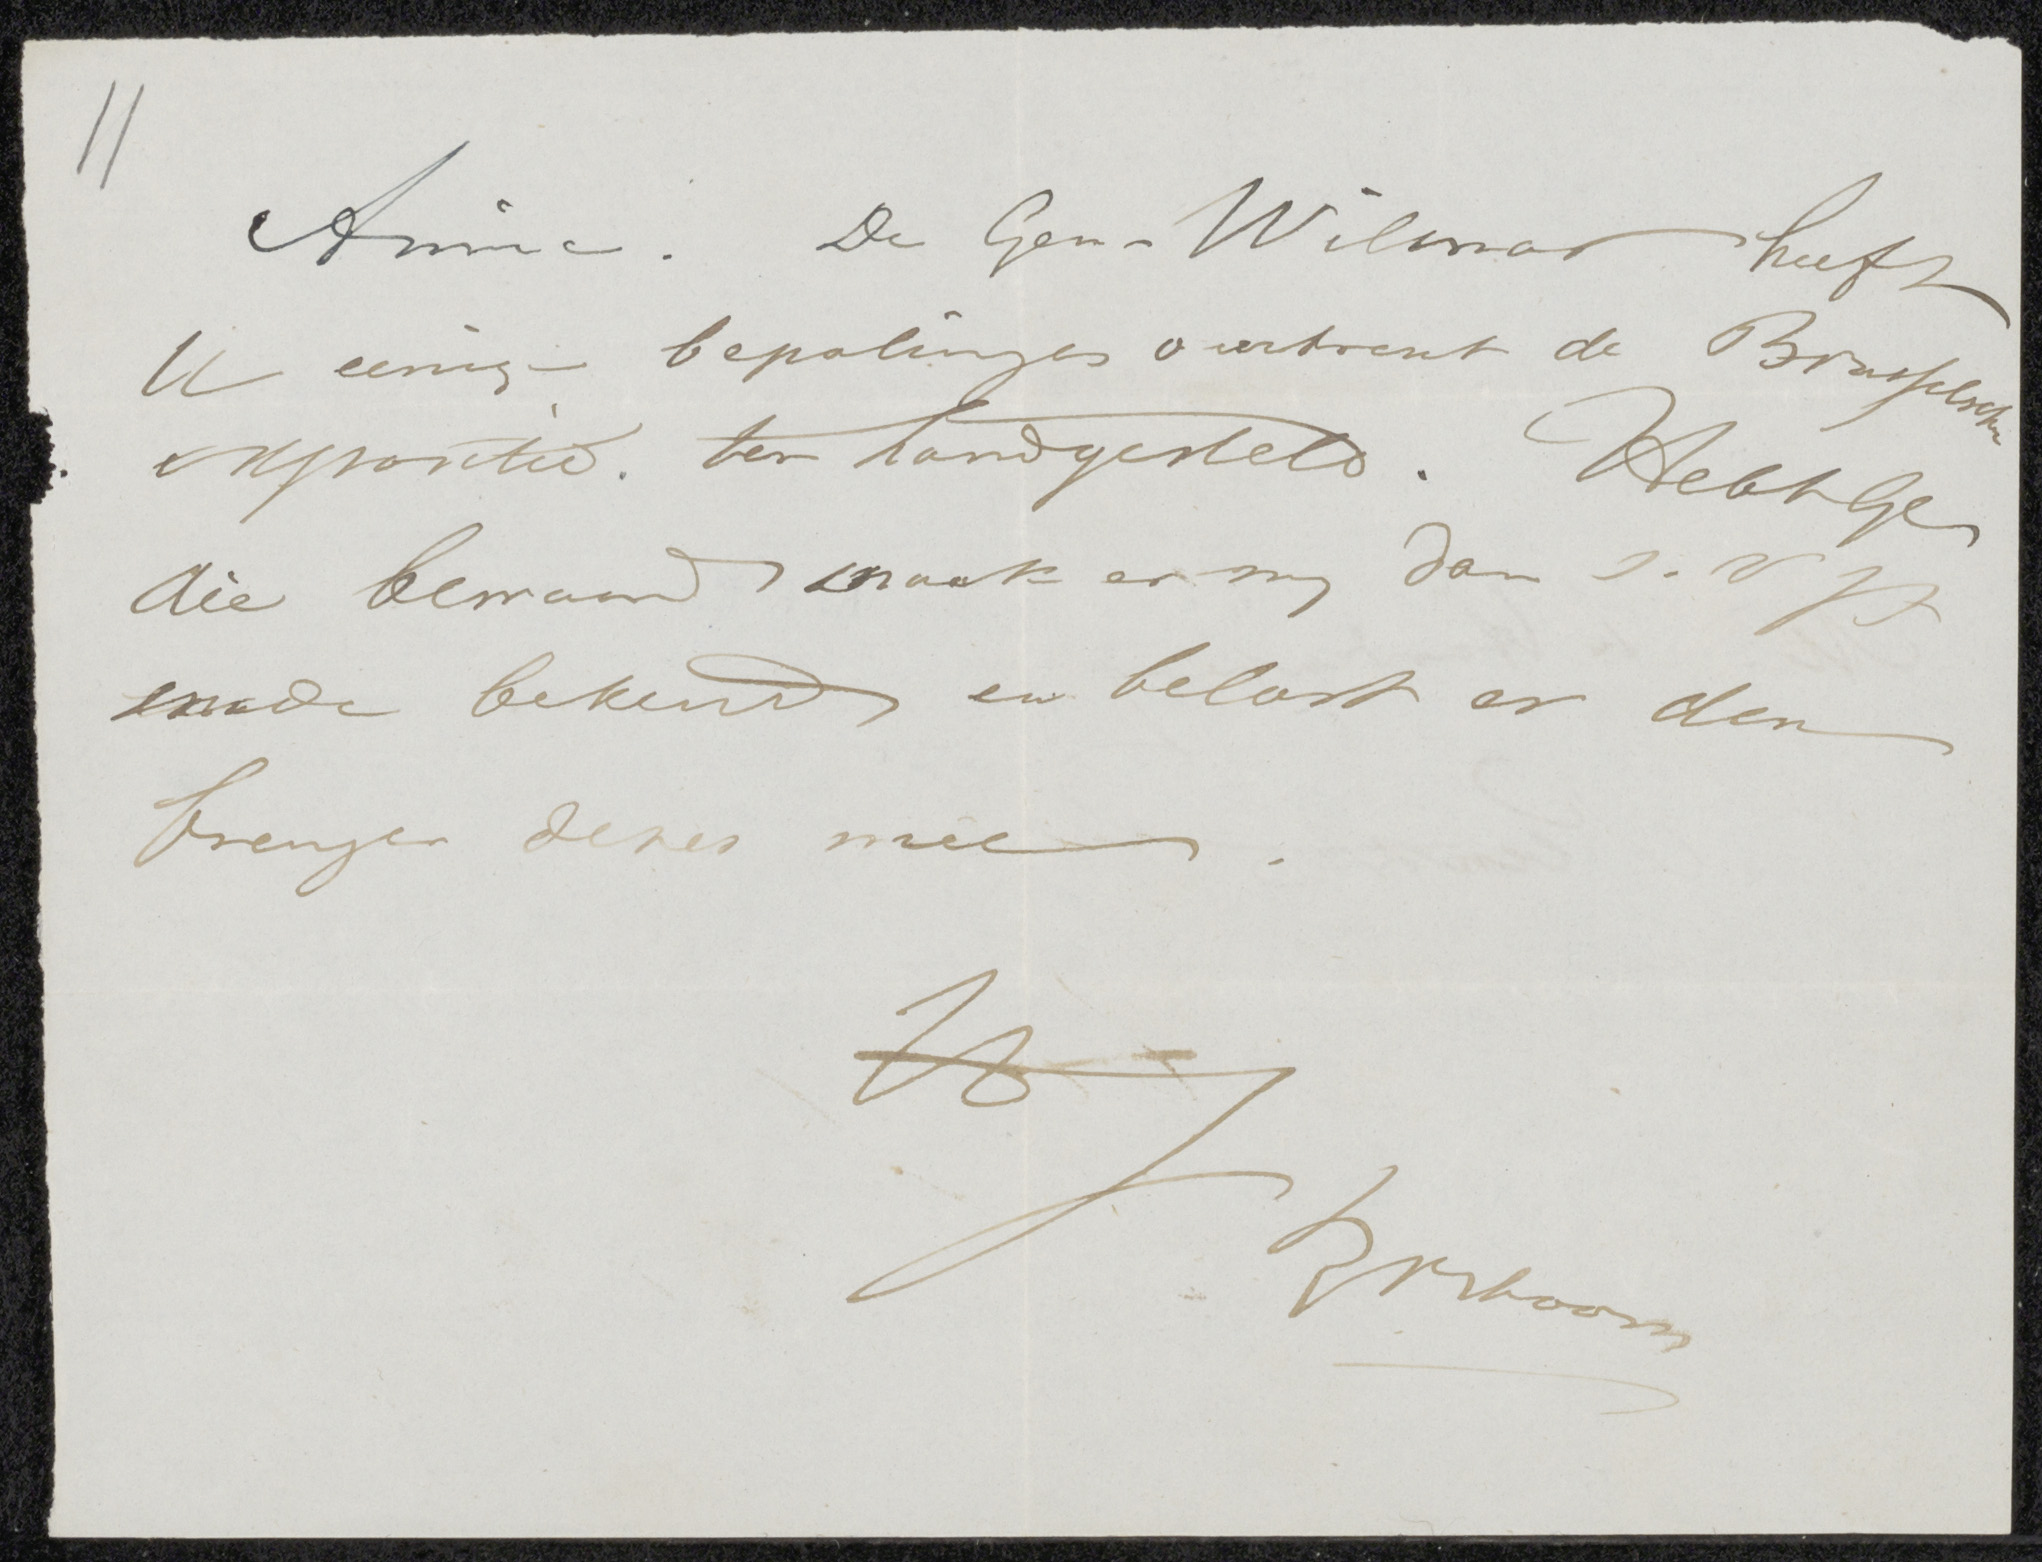 11
Amice. De Gen. Wilmar heeft
U eenige bepalingen overtrent de Brusselsche
expositie. ter handgesteld. Hebt Ge
die bewaard, maak er mij dan s. v pl
mede bekend, en belast er den
brenger dezes mee.